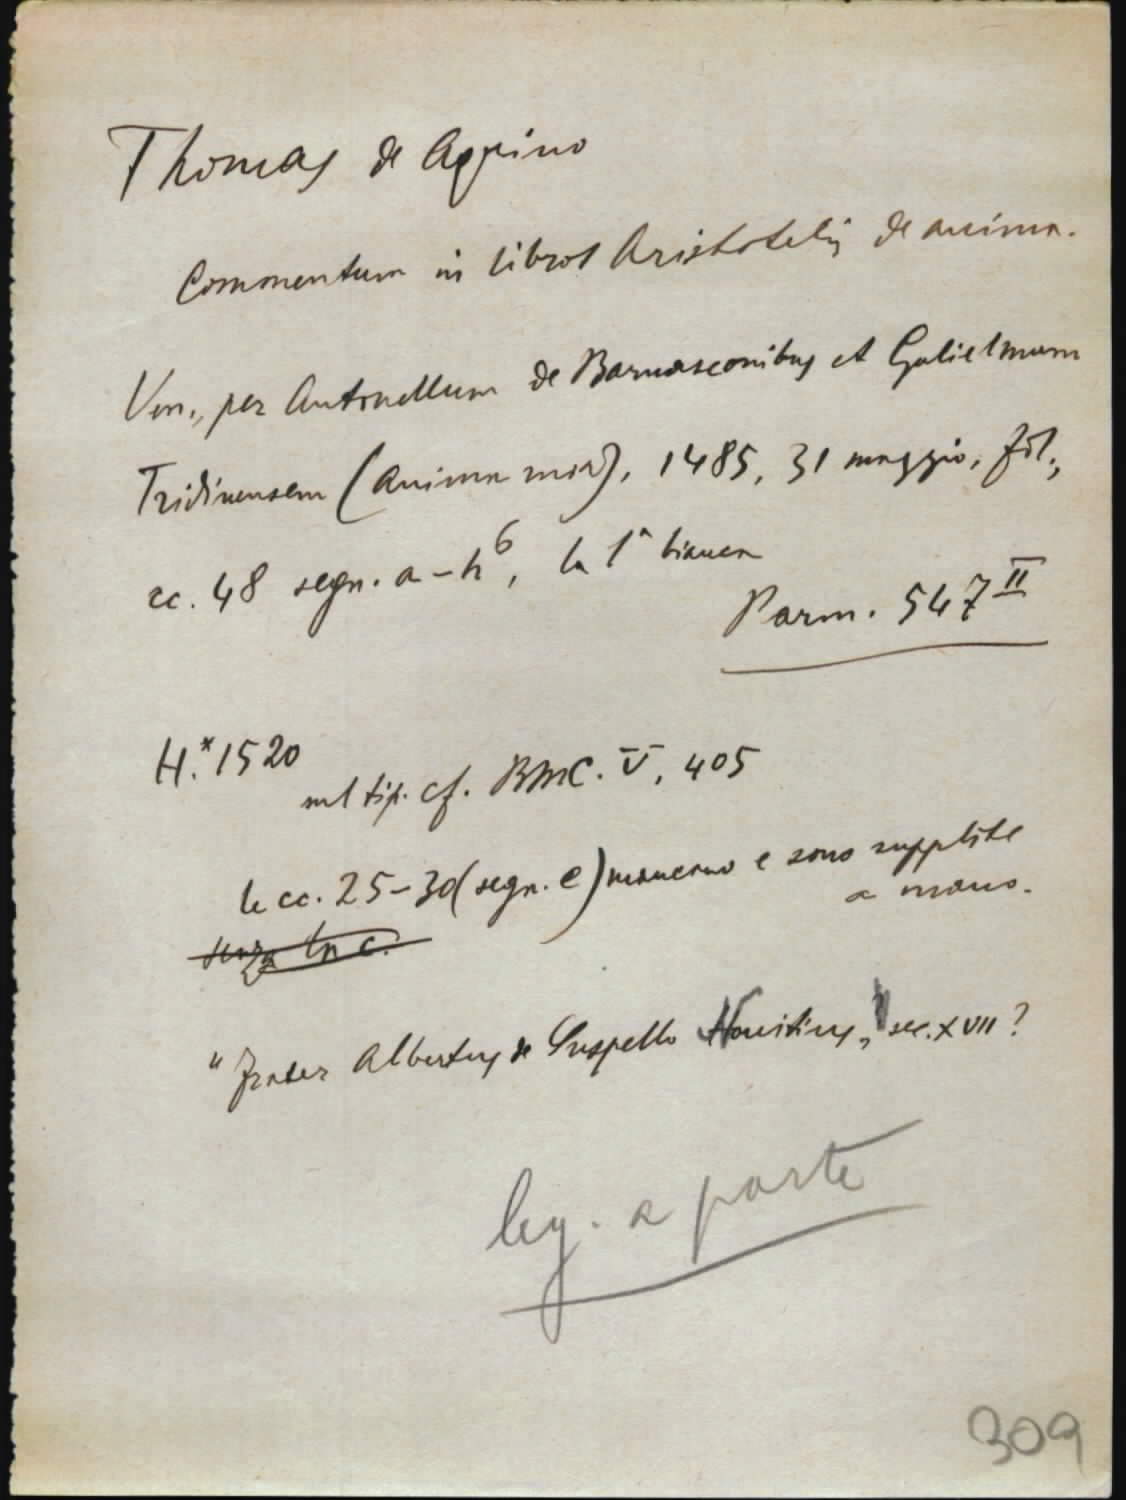 Thomas de Aquino
Commentum in libros Aristotelis de anima.
Ven., per Antonellum de Barnasconibus et Gulielmum
Tridinensem (Anima mia), 1485, 31 maggio, fol.,
cc. 48 segn. a-h⁶, la 1ª bianca
Parm. 547 II
H.* 1520
nel tip. cf. BMC. V, 405
le cc. 25-30 (segn. e) mancano e sono supplite
a mano.
senza In c.
"Frater Albertus de Suspello Novitius," sec. XVII?
leg. a parte
309